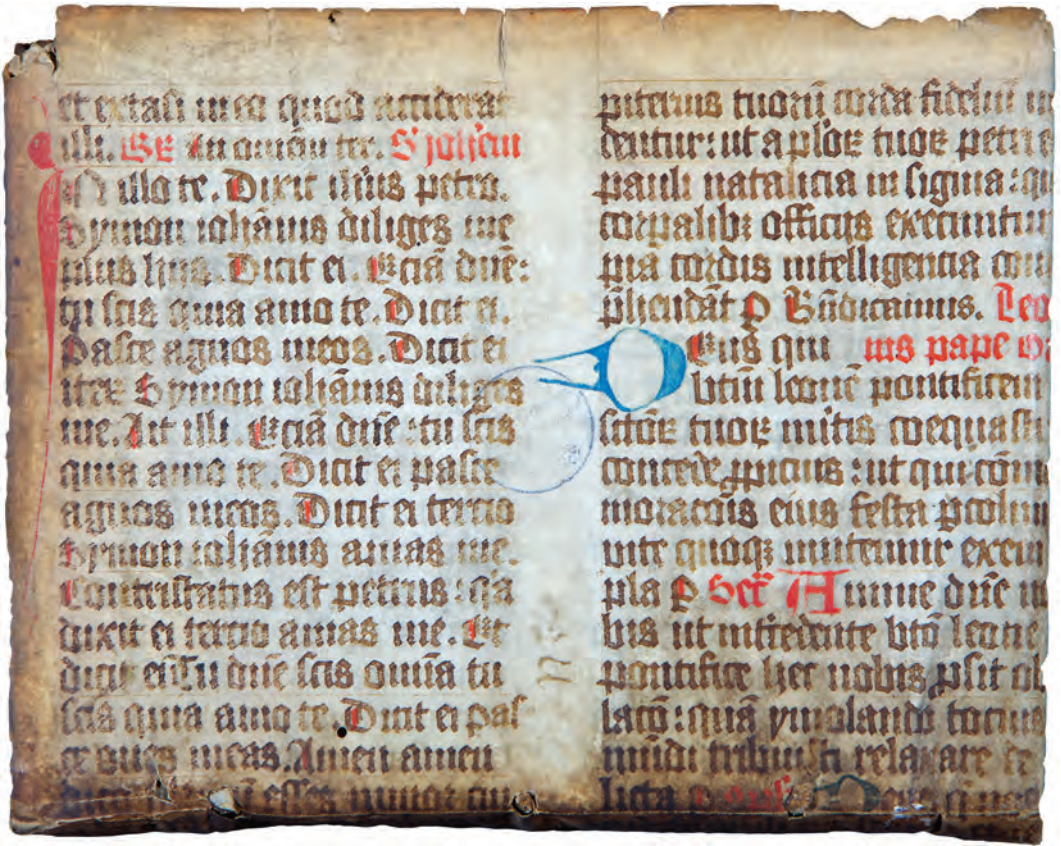 et extasi in eo quod acciderat
illi. In omēm ter. S johem
IN illo te. Dixit ihūs petro.
Symon iohānis diliges me
plus hijs. Dicit ei. Eciā dūe:
tu scis quia amo te. Dicit ei.
Pasce agnos meos. Dicit ei
iteꝝ Symon iohānis diliges
me. Ait illi. Eciā dn̄e : tu scis
quia amo te. Dicit ei pasce
agnos meos. Dicit ei tercio
Symon iohānis amas me.
Contristatus est petrus : q̄a
dixit ei tercio amas me. Et
dicit ei Tu dn̄e scis om̄ia tu
scis quia amo te. Dicit ei pas
ce oues meas. Amen amen
esses iunior
piternis tuoꝝ corda fideliū
dentur : ut aplōꝝ tuoꝝ petri
pauli natalicia insignia : q
corꝑalibꝫ officijs execuntur
pia cordis intelligencia
ꝑhendāt ꝑ Bn̄dicamus. Leo
Deus qui nis pape
btīm leonē pontificem
sctōꝝ tuoꝝ mitis coequasti
concede ꝓpicius : ut qui cōm
moracōis eius festa ꝑcolim
vite quoqꝫ imitemur exem
pla ꝑ Secr̄ Annue dn̄e
bis ut int̄cedente btō leone
pontifice hec nobis ꝓsit ob
lacō : quā ymolando tocius
mūdi tribuisti relaxare de
licta